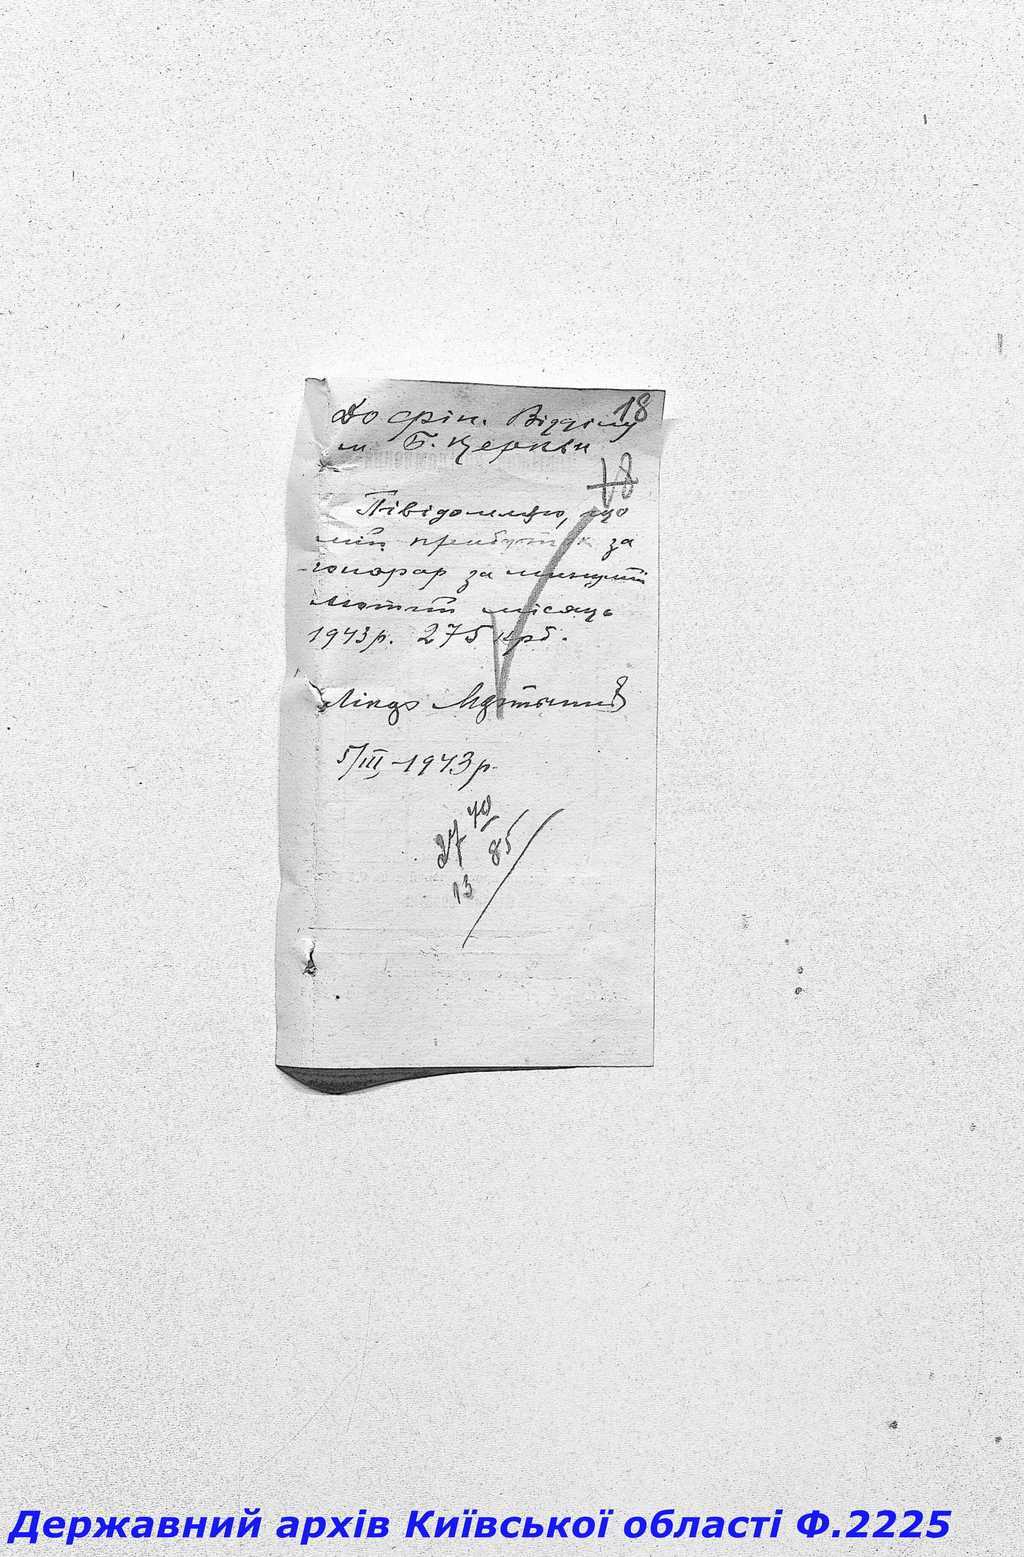 18
До фін. Відділу
м. Б. Церкви
18
Півідомляю, що
мій прибуток за
гонорар за минулий
лютий місяць
1943 р. 275 крб.
5/III-1943 р.
40
27 85
13
Державний архів Київської області Ф.2225